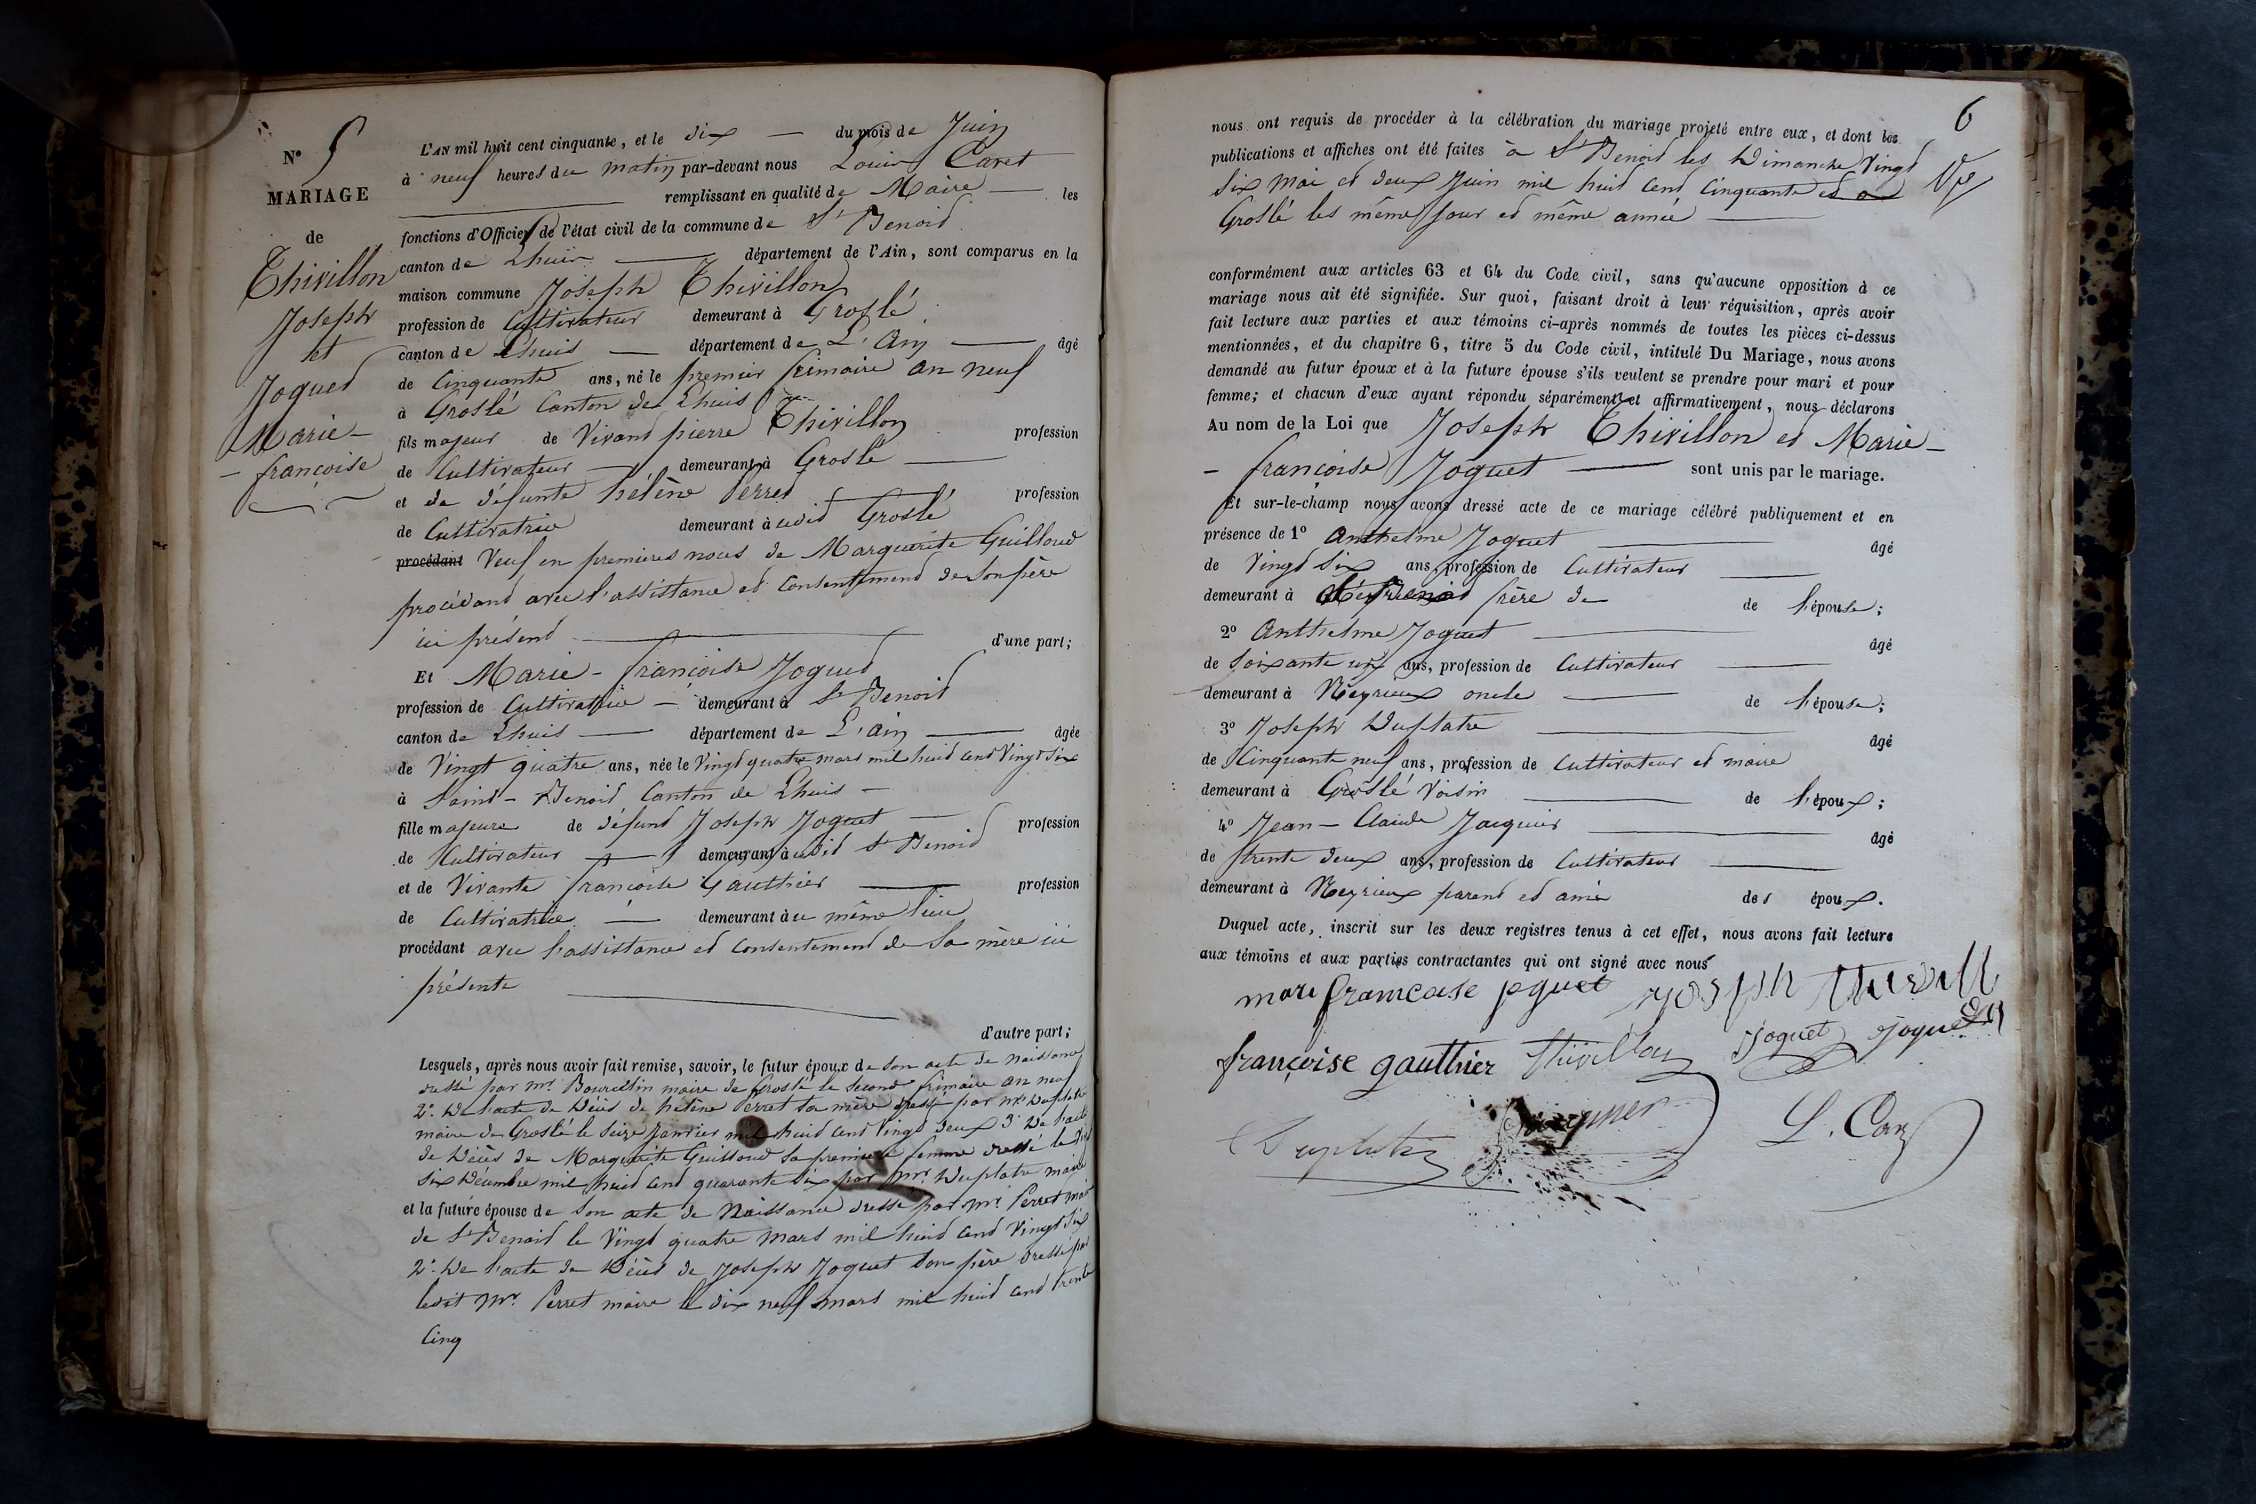 N° 5
MARIAGE
de
Thivillon
Joseph
et
Joguet
Marie-
-françoise
L'AN mil huit cent cinquante, et le dix — du mois de Juin
à neuf heures du matin par-devant nous Louis Caret
remplissant en qualité de Maire — les
fonctions d'Officier de l'état civil de la commune de St Benoit
canton de Lhuis — département de l'Ain, sont comparus en la
maison commune Joseph Thivillon
profession de Cultivateur demeurant à Groslé
canton de Lhuis — département de L'Ain — âgé
de Cinquante ans, né le premier frimaire an neuf
à Groslé Canton de Lhuis
fils majeur de Vivant pierre Thivillon profession
de Cultivateur — demeurant à Groslé —
et de défunte hélène Perret profession
de Cultivatrice demeurant à udit Groslé
procédant Veuf en premieres noces de Marguerite Guilloud
procédant avec l'assistance et consentement de Son père
ici présent — d'une part;
Et Marie-françoise Joguet
profession de Cultivatrice — demeurant à St Benoit
canton de Lhuis — département de L'Ain — âgée
de Vingt quatre ans, née le Vingt quatre mars mil huit cent Vingt Six
à Saint-Benoit Canton de Lhuis —
fille majeure de défunt Joseph Joguet — profession
de Cultivateur — demeurant à udit St Benoit
et de Vivante françoise Gauthier — profession
de Cultivatrice — demeurant à u même lieu
procédant avec l'assistance et consentement de Sa mère ici
présente —
d'autre part;
Lesquels, après nous avoir fait remise, savoir, le futur époux de son acte de naissance
dressé par mr. Bourcelin maire de Groslé le second frimaire an neuf
2°. De l'acte de Décès de helène Perret Sa mère dressé par mr Duplatre
maire de Groslé le Seize Janvier mil huit cent Vingt deux 3° De l'acte
de Décès de Marguerite Guilloud Sa premiere femme dressé le
Six Décembre mil huit cent quarante Six par mr. Duplatre maire
et la future épouse de Son acte de Naissance dressé par mr. Perret maire
de St Benoit le Vingt quatre Mars mil huit cent Vingt Six
2°. De l'acte de Décès de Joseph Joguet Son père dressé par
ledit Mr. Perret maire le dix neuf mars mil huit cent trente
Cinq
6
nous ont requis de procéder à la célébration du mariage projeté entre eux, et dont les
publications et affiches ont été faites à St Benoit les Dimanche Vingt
Six Mai et deux Juin mil huit cent Cinquante et a
Groslé les même Jour et même année —
conformément aux articles 63 et 64 du Code civil, sans qu'aucune opposition à ce
mariage nous ait été signifiée. Sur quoi, faisant droit à leur réquisition, après avoir
fait lecture aux parties et aux témoins ci-après nommés de toutes les pièces ci-dessus
mentionnées, et du chapitre 6, titre 5 du Code civil, intitulé Du Mariage, nous avons
demandé au futur époux et à la future épouse s'ils veulent se prendre pour mari et pour
femme; et chacun d'eux ayant répondu séparément et affirmativement, nous déclarons
Au nom de la Loi que Joseph Thivillon et Marie-
-françoise Joguet — sont unis par le mariage.
Et sur-le-champ nous avons dressé acte de ce mariage célébré publiquement et en
présence de 1° Anthelme Joguet — âgé
de Vingt Six ans, profession de Cultivateur —
demeurant à frère de de l'épouse;
2° Anthelme Joguet — âgé
de Soixante ans, profession de Cultivateur —
demeurant à Neyrieux oncle — de l'épouse;
3° Joseph Duplatre — âgé
de Cinquante neuf ans, profession de Cultivateur et maire
demeurant à Groslé Voisin — de l'époux;
4° Jean-Claude Jacquier — âgé
de trente deux ans, profession de Cultivateur —
demeurant à Neyrieux parent et ami des époux.
Duquel acte, inscrit sur les deux registres tenus à cet effet, nous avons fait lecture
aux témoins et aux parties contractantes qui ont signé avec nous
mari francoise joguet joseph thivill
françoise gauthier thivillon Joguet Joguet
Duplatre L. Caret